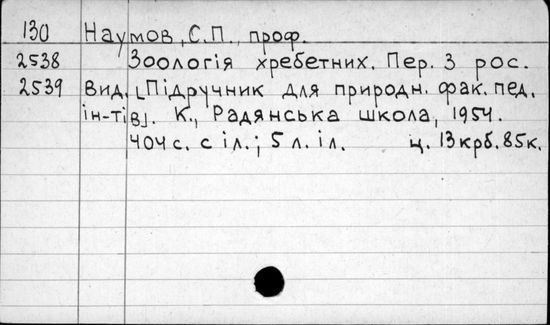 130 Наумов, С.П., проф.
2538 Зоологія хребетних. Пер. з рос.
2539 вид. [Підручник для природн. фак. пед.
ін-тів]. К., Радянська школа, 1954.
404 с. с іл.; 5 л. іл. ц. 13 крб. 85 к.